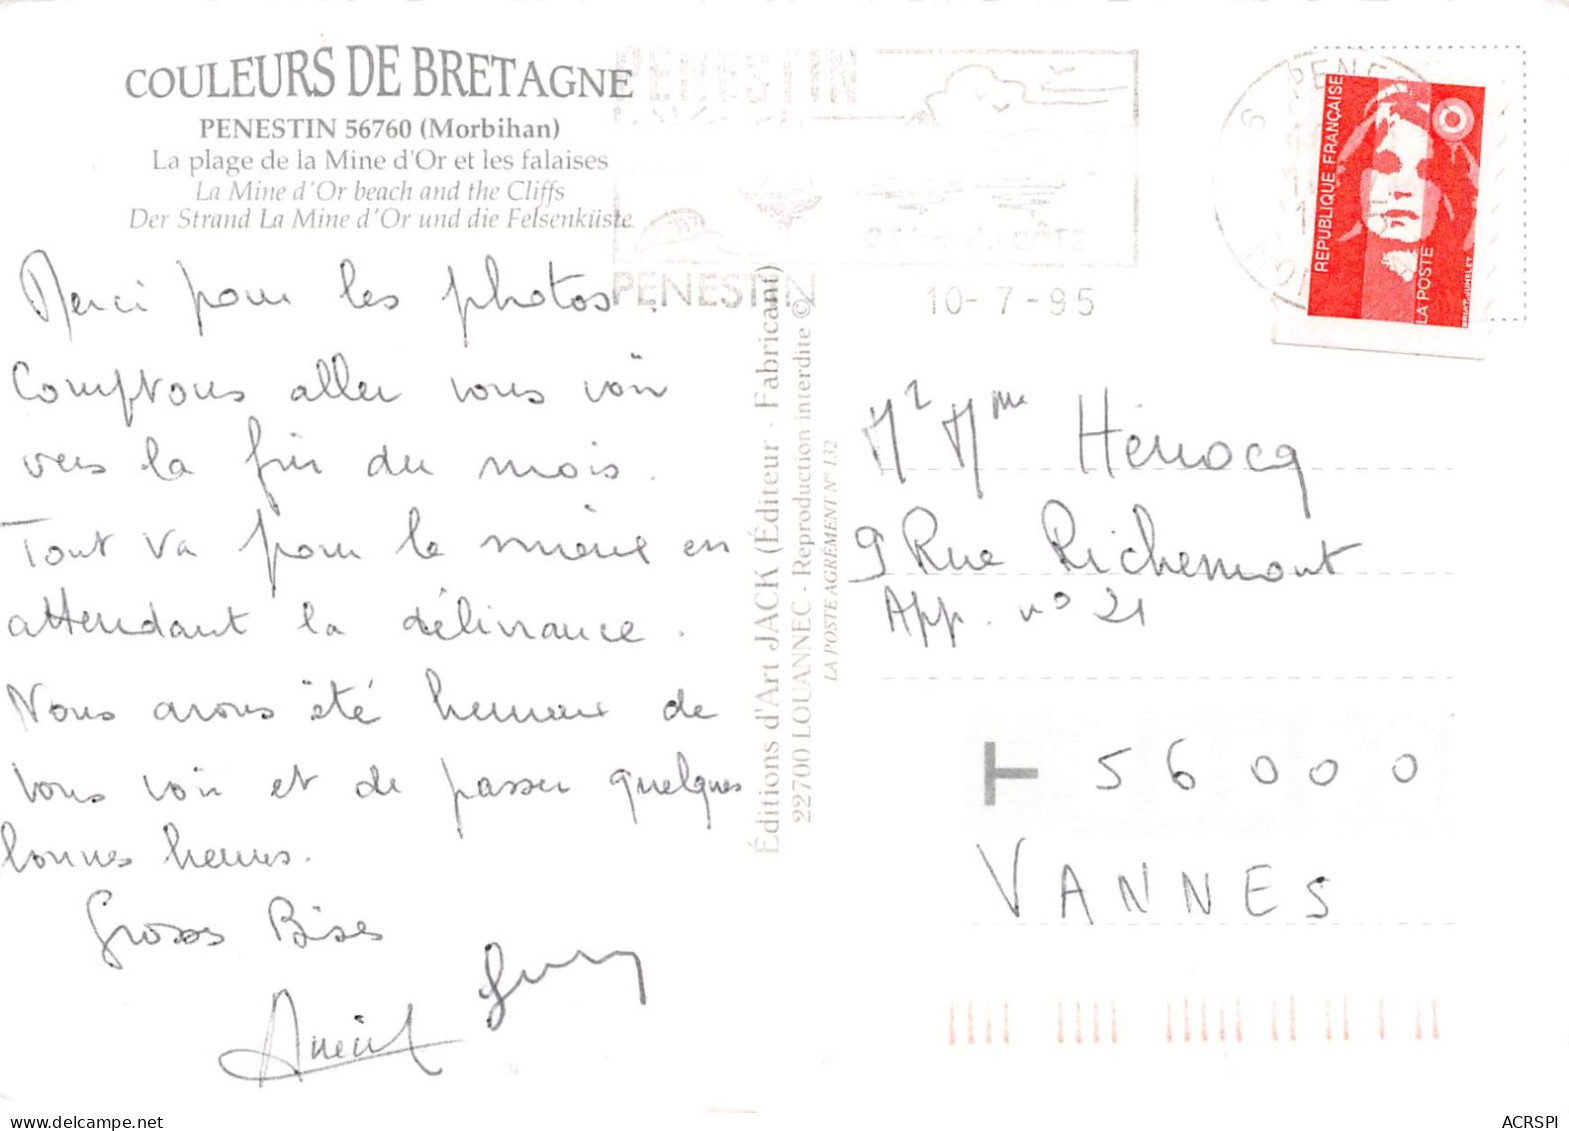 COULEURS DE BRETAGNE
PENESTIN 56760 (Morbihan)
La plage de la Mine d'Or et les falaises
La Mine d'Or beach and the Cliffs
Der Strand La Mine d'Or und die Felsenküste
Merci pour les photos.
Comptons aller vous voir
vers la fin du mois.
Tout va pour le mieux en
attendant la délivrance.
Nous avons été heureux de
vous voir et de passer quelques
bonnes heures.
Grosses Bises
Éditions d'Art JACK (Éditeur - Fabricant)
22700 LOUANNEC - Reproduction interdite ©
LA POSTE AGRÉMENT N° 132
PENESTIN
PENESTIN
10-7-95
REPUBLIQUE FRANÇAISE
LA POSTE
BRIAT-JUMELET
Mr Mme Hénocq
9 Rue Richemont
App. n° 21
T 56000
VANNES
ACRSPI